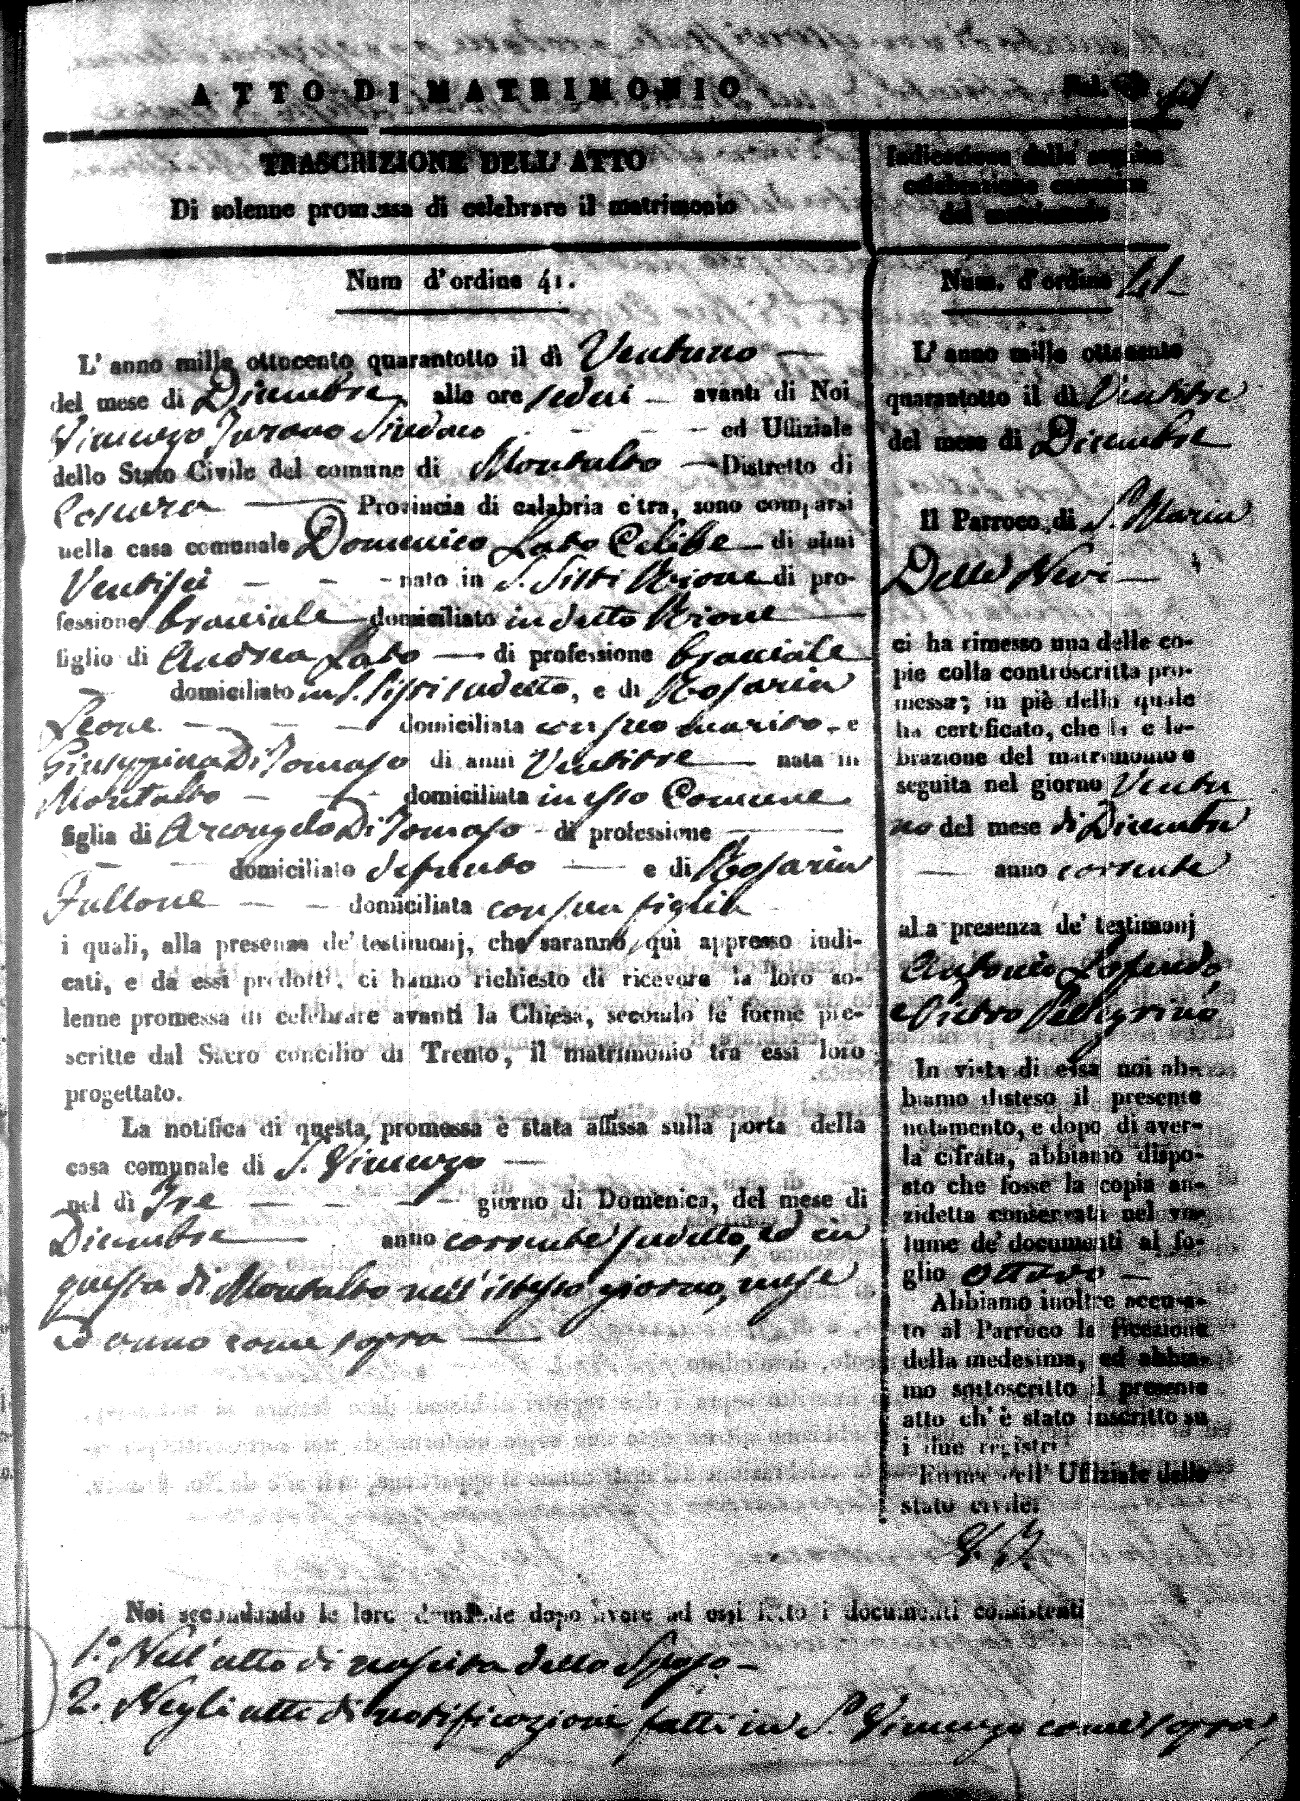 ATTO DI MATRIMONIO
TRASCRIZIONE DELL' ATTO
Di solenne promessa di celebrare il matrimonio
Num d'ordine 41.
L' anno mille ottocento quarantotto il dì Ventuno
del mese di Dicembre, alle ore sedici avanti di Noi
Vincenzo Turano Sindaco ed Uffiziale
dello Stato Civile del comune di Montalto Distretto di
Cosenza Provincia di calabria citra, sono comparsi
nella casa comunale Domenico Lato Celibe di anni
Ventisei nato in S. Sisti Rione di pro-
fessione bracciale domiciliato in detto Rione
figlio di Andrea Lato di professione bracciale
domiciliato in S. Sisti sudetto, e di Rosaria
Leone domiciliata con suo marito, e
Giuseppina Di Tomaso di anni Ventitre nata in
Montalto domiciliata in esso Comune
figlia di Arcangelo Di Tomaso di professione
domiciliato defunto e di Rosaria
Fullone domiciliata con sua figlia
i quali, alla presenza de' testimonj, che saranno qui appresso indi-
cati, e da essi prodotti, ci hanno richiesto di ricevere la loro so-
lenne promessa di celebrare avanti la Chiesa, secondo le forme pre-
scritte dal Sacro concilio di Trento, il matrimonio tra essi loro
progettato.
La notifica di questa promessa è stata affissa sulla porta della
casa comunale di S. Vincenzo
nel dì Tre giorno di Domenica, del mese di
Dicembre anno corrente sudetto, ed in
questa di Montalto nell' istesso giorno, mese
ed anno come sopra
Indicazione della seguita
celebrazione canonica
del matrimonio
Num. d'ordine 41
L' anno mille ottocento
quarantotto il dì Ventitre
del mese di Dicembre
Il Parroco di S. Maria
Delle Nevi
ci ha rimesso una delle co-
pie colla controscritta pro-
messa; in piè della quale
ha certificato, che la cele-
brazione del matrimonio e
seguita nel giorno Ventu
no del mese di Dicembre
anno corrente
aLa presenza de' testimonj
Antonio
e Pietro Pellegrino
In vista di essa noi ab-
biamo disteso il presente
notamento, e dopo di aver-
la cifrata, abbiamo dispo-
sto che fosse la copia an-
zidetta conservata nel vo-
lume de' documenti al fo-
glio ottavo
Abbiamo inoltre accusa-
to al Parroco la ricezione
della medesima, ed abbia-
mo sottoscritto il presente
atto ch' è stato inscritto su
i due registri
Firma dell' Uffiziale dello
stato civile.
Noi secondando le loro domande dopo avere ad essi letto i documenti consistenti
1.º Nell' atto di nascita dello Sposo
2. Negli atti di notificazione fatti in S. Vincenzo come sopra,